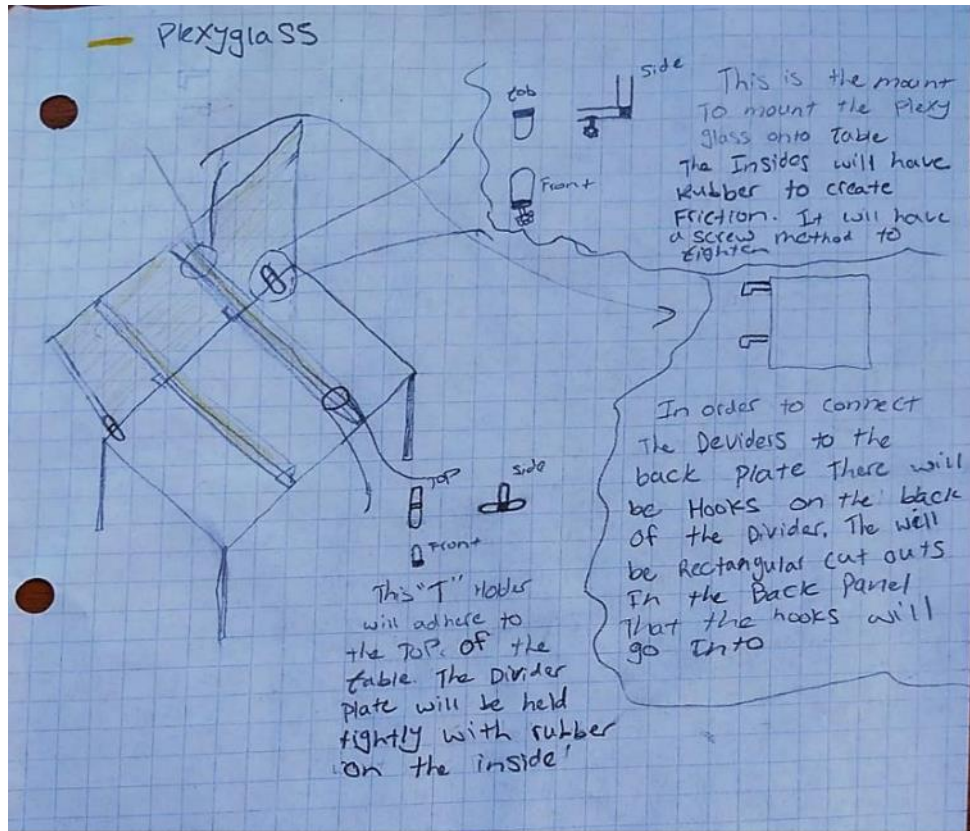 Plexyglass
top
side
Front
This is the mount
To mount the Plexy
glass onto Table
The Insides will have
Rubber to create
Friction. It will have
a screw method to
tighten
In order to connect
The Deviders to the
back Plate There will
be Hooks on the back
of the Divider. The will
be Rectangular cut outs
In the Back Panel
That the hooks will
go Into
TOP
side
Front
This "T" Holder
will adhere to
the TOP. of the
table. The Divider
Plate will be held
tightly with rubber
on the inside!